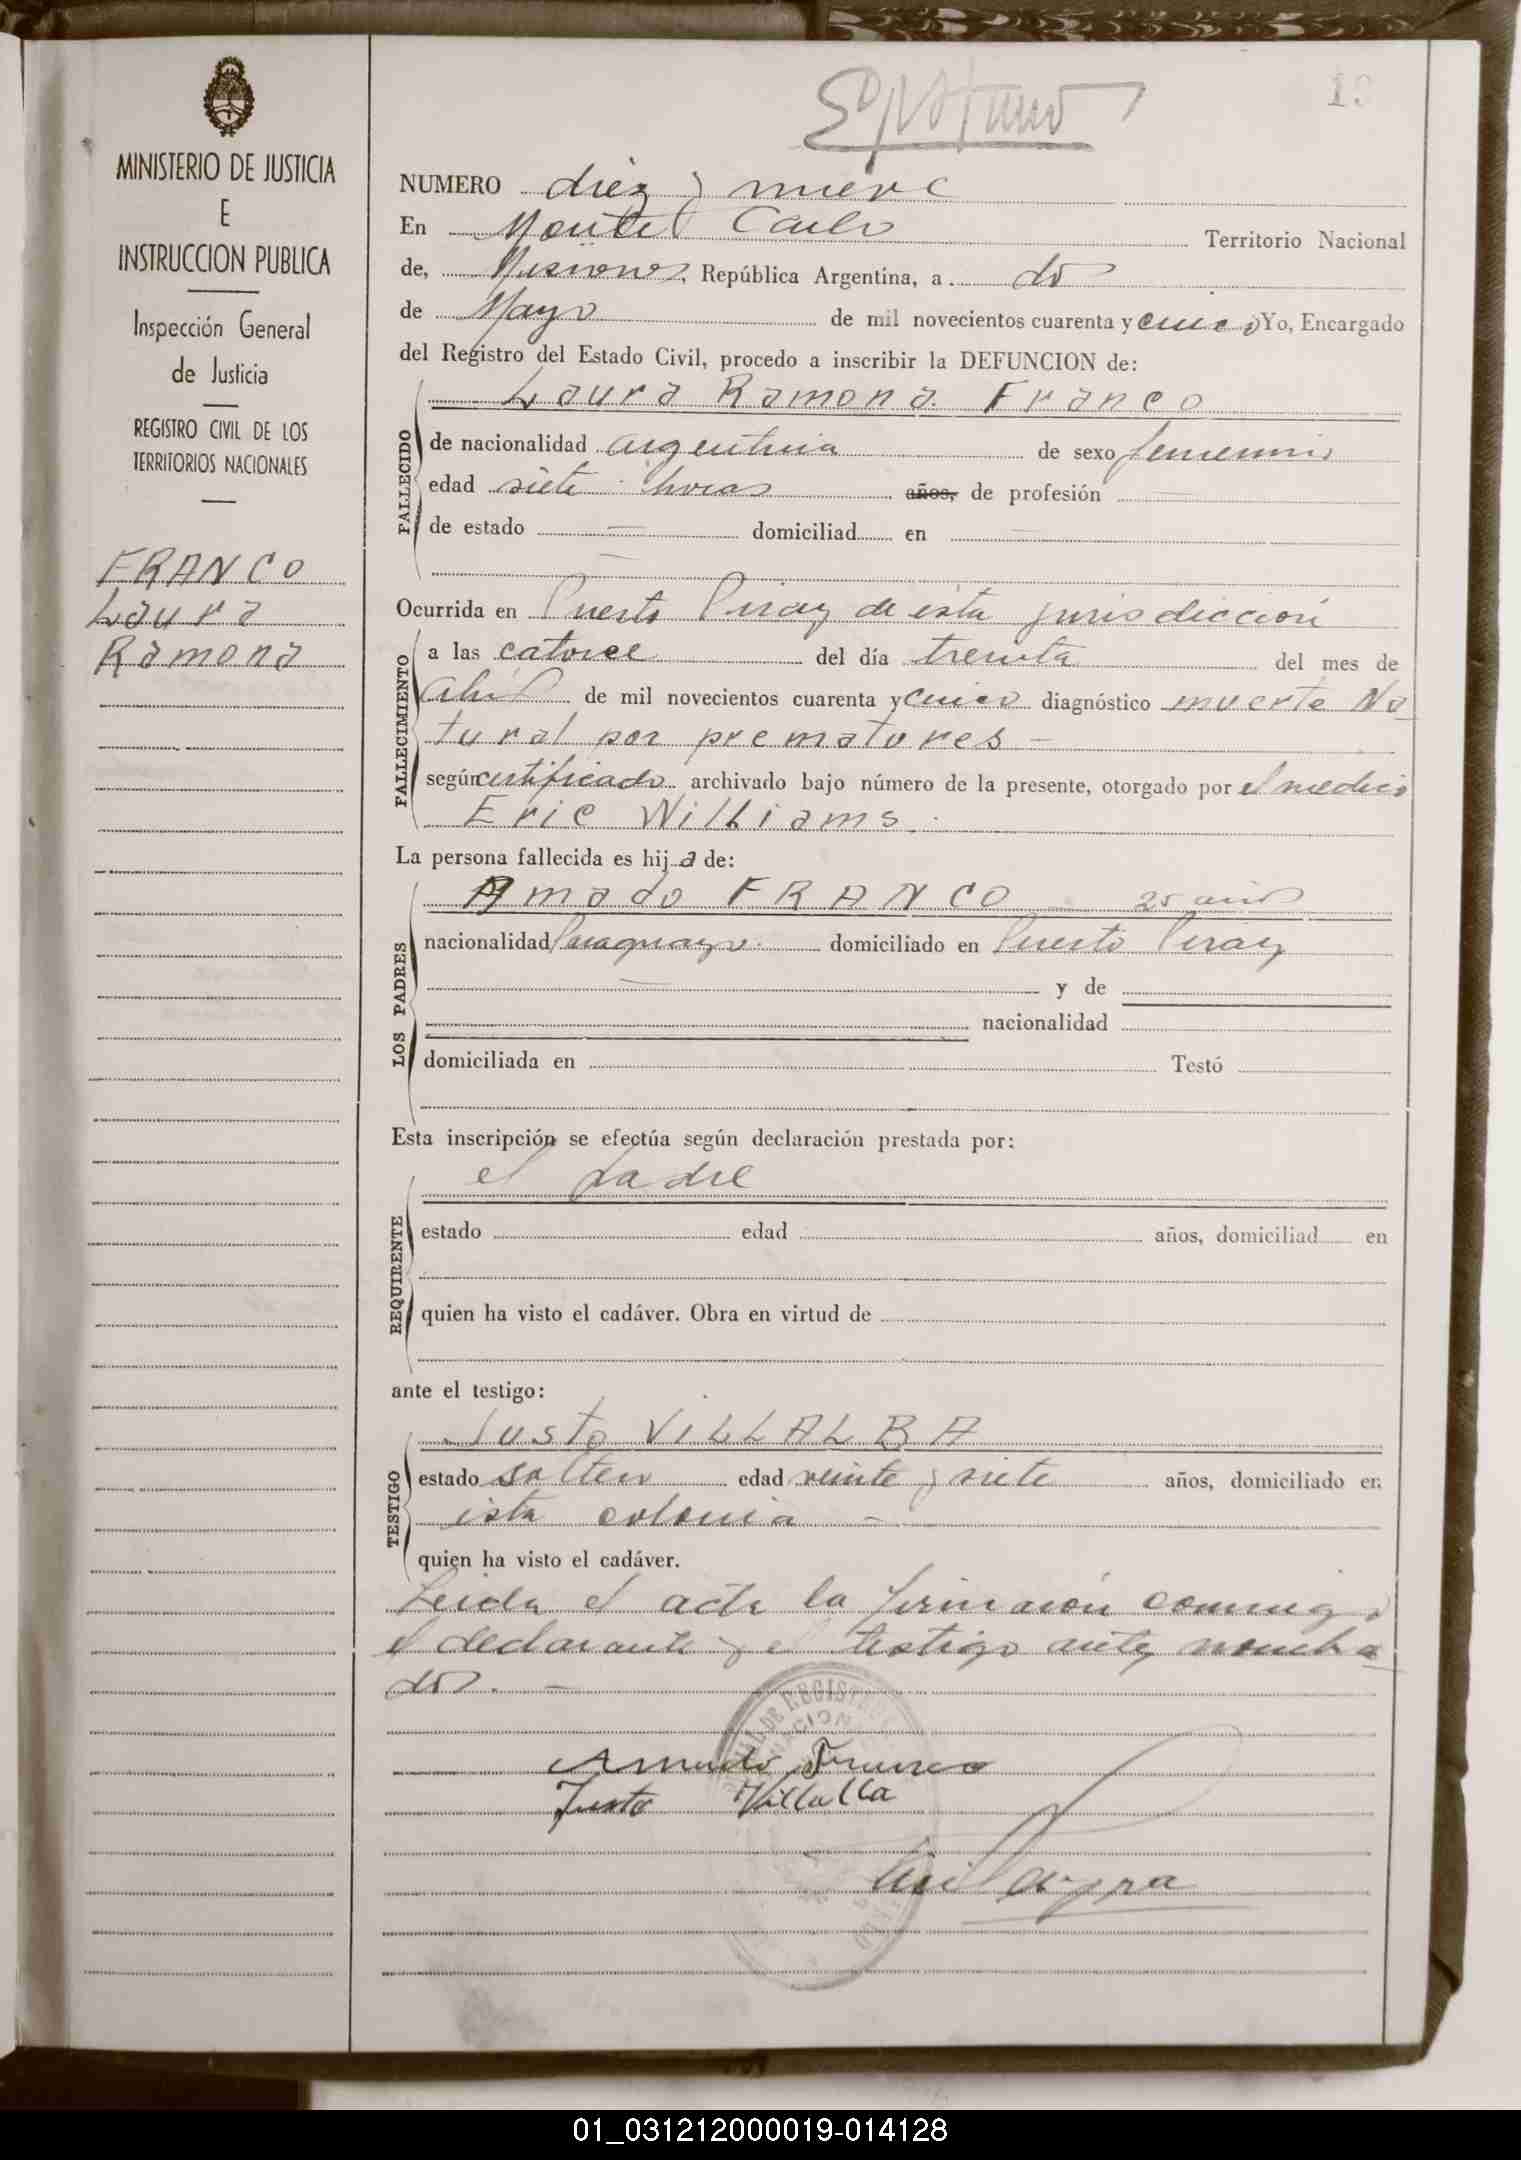 19
MINISTERIO DE JUSTICIA
E
INSTRUCCION PUBLICA
Inspección General
de Justicia
REGISTRO CIVIL DE LOS
TERRITORIOS NACIONALES
FRANCO
Laura
Ramona
NUMERO diez y nueve
En Monte Carlo Territorio Nacional
de, Misiones, República Argentina, a dos
de Mayo de mil novecientos cuarenta y cinco Yo, Encargado
del Registro del Estado Civil, procedo a inscribir la DEFUNCION de:
FALLECIDO
Laura Ramona Franco
de nacionalidad argentina de sexo femenino
edad siete horas años, de profesión —
de estado — domiciliad en —
—
Ocurrida en Puerto Piray de esta jurisdicción
FALLECIMIENTO
a las catorce del día treinta del mes de
Abril de mil novecientos cuarenta y cinco diagnóstico muerte Na
tural por prematures —
según certificado archivado bajo número de la presente, otorgado por el medico
Eric Williams.
La persona fallecida es hija de:
LOS PADRES
Amado FRANCO 25 años
nacionalidad Paraguayo. domiciliado en Puerto Piray
— y de
nacionalidad
domiciliada en Testó
Esta inscripción se efectúa según declaración prestada por:
REQUIRENTE
el padre
estado edad años, domiciliad en
quien ha visto el cadáver. Obra en virtud de
ante el testigo:
TESTIGO
Justo ViLLALBA
estado soltero edad veinte y siete años, domiciliado en
esta colonia —
quien ha visto el cadáver.
Leida el acta la firmarón conmigo
el declarante y el testigo antes nombra
dos. —
Amado Franco
Justo Villalba
01_031212000019-014128